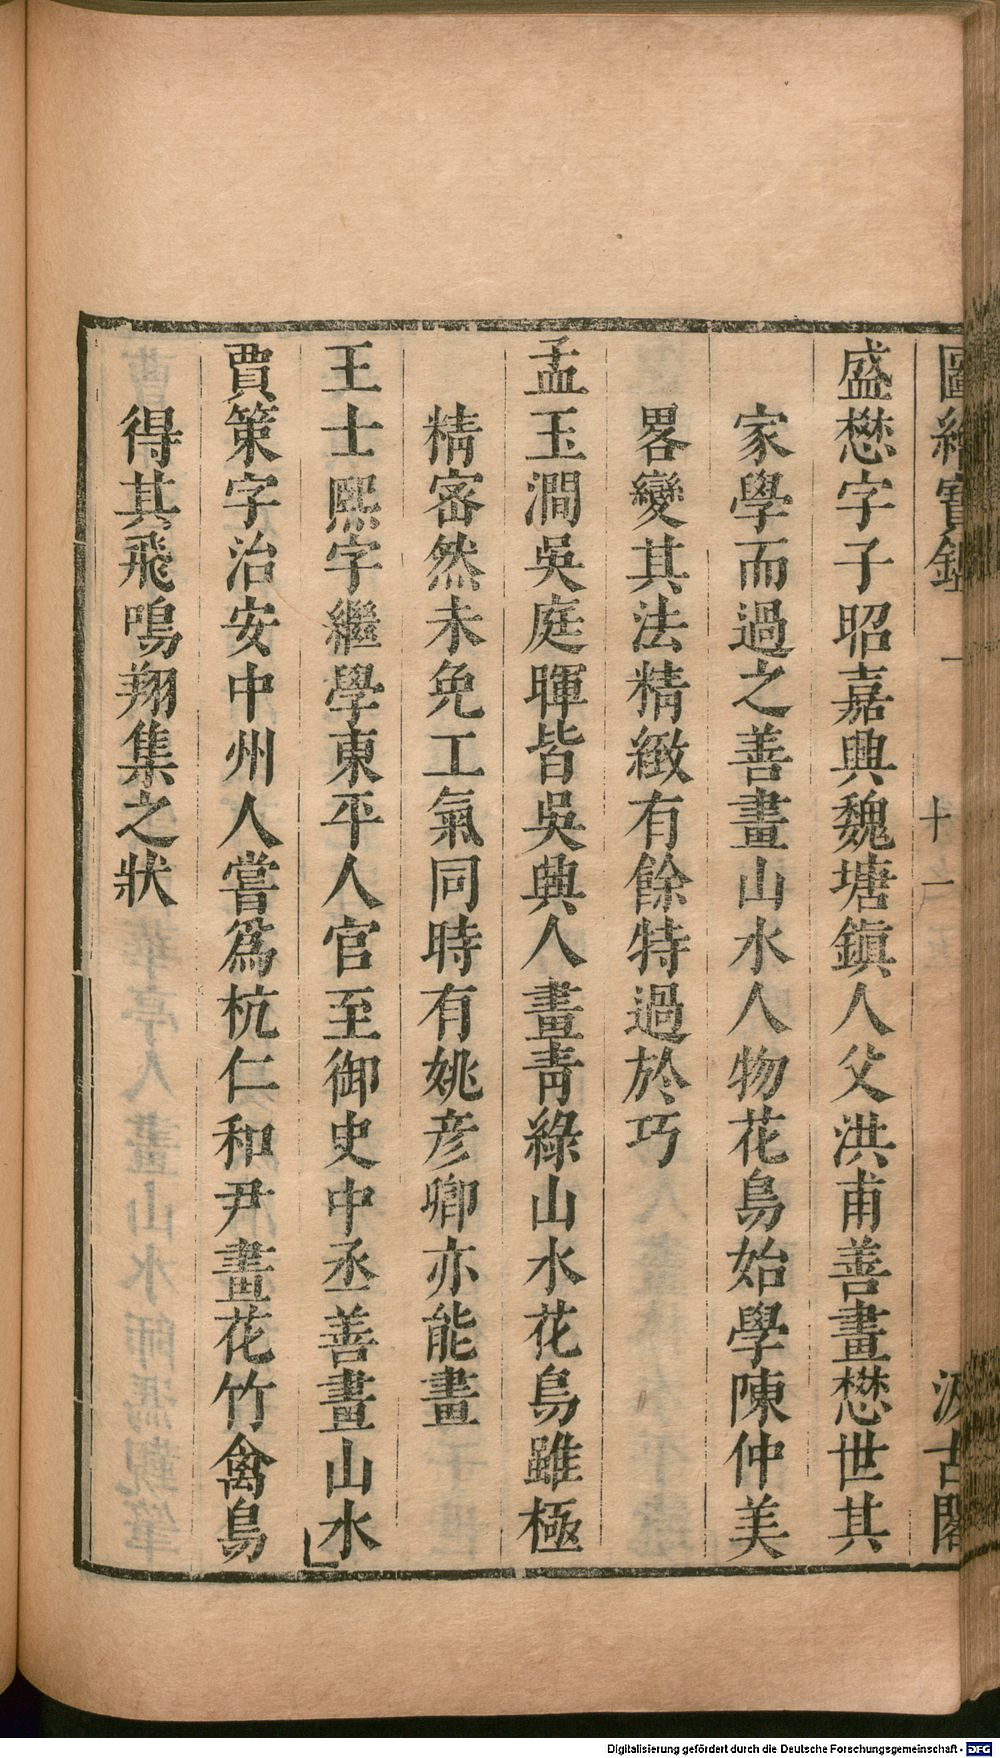 圖繪寶鑑 十一 汲古閣
盛懋字子昭嘉興魏塘鎮人父洪甫善畫懋世其
家學而過之善畫山水人物花鳥始學陳仲美
畧變其法精緻有餘特過於巧
孟玉澗吳庭暉皆吳興人畫靑綠山水花鳥雖極
精密然未免工氣同時有姚彥卿亦能畫
王士熙字繼學東平人官至御史中丞善畫山水
賈策字治安中州人嘗爲杭仁和尹畫花竹禽鳥
得其飛鳴翔集之狀
Digitalisierung gefördert durch die Deutsche Forschungsgemeinschaft - DFG